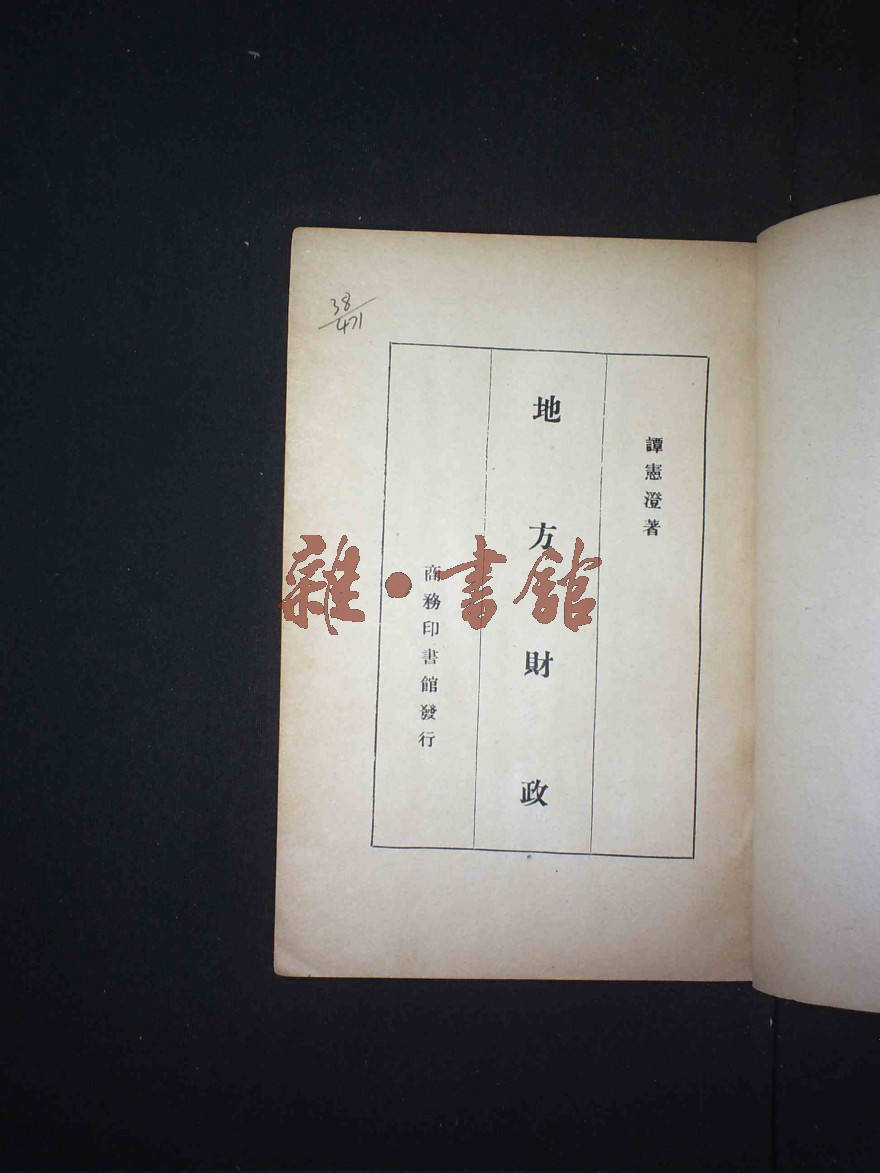 38/471
譚憲澄著
地方財政
商務印書館發行
雜·書館